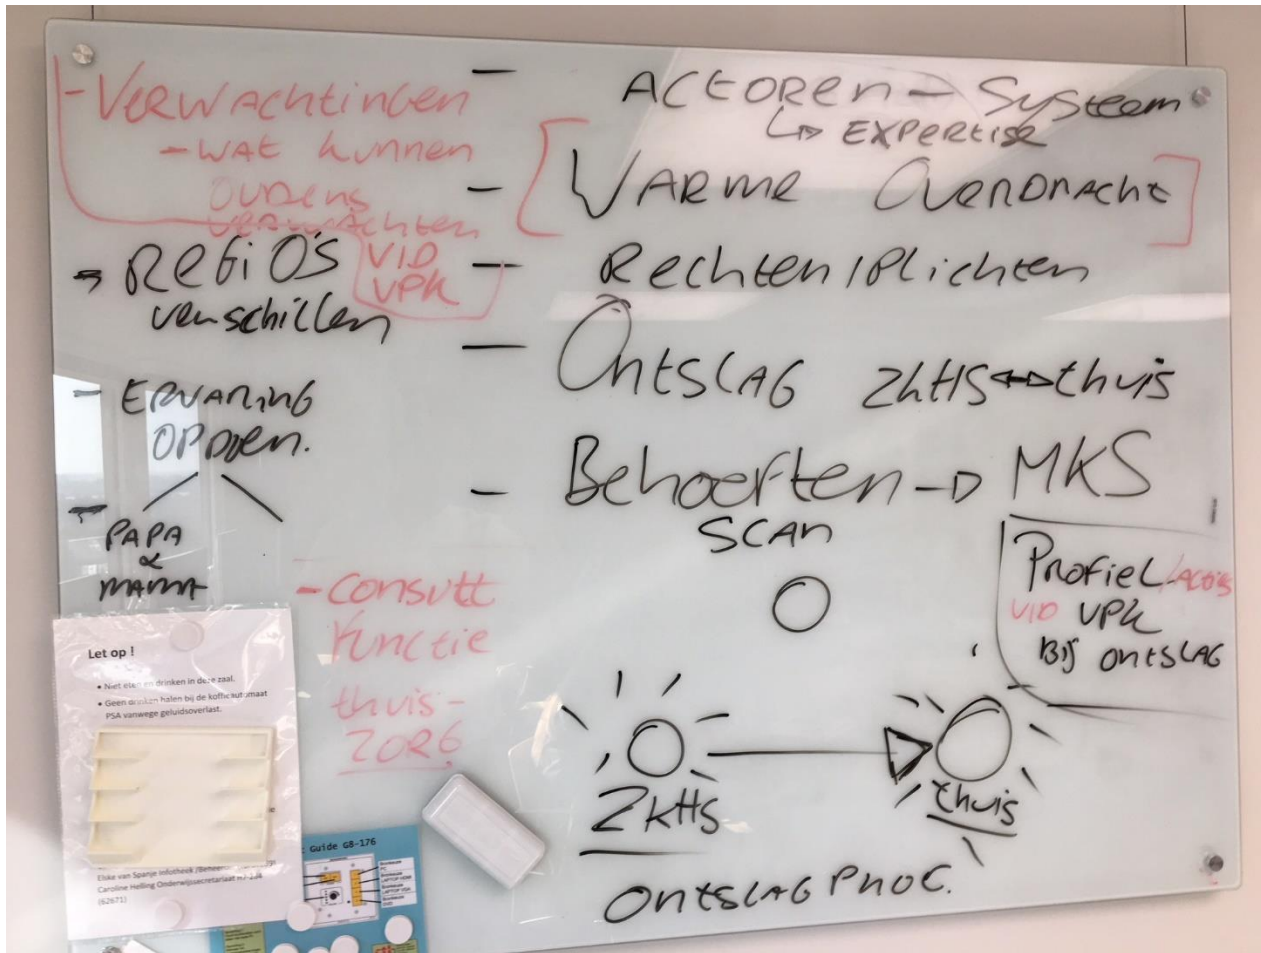 - VERWACHTINGEN
- WAT KUNNEN
OUDERS
VERWACHTEN
VID
VPK
→ REGIO'S
verschillen
- ERVARING
OPDOEN.
- PAPA
&
MAMA
- CONSULT
FUNCTIE
thuis-
ZORG
- ACTOREN - SYSTEEM
↳ EXPERTISE
- [WARME OVERDRACHT]
- Rechten/Plichten
- ONTSLAG ZKHS ↔ thuis
- Behoeften → MKS
SCAN
PROFIEL
VID VPK
BIJ ONTSLAG
ZKHS
thuis
ONTSLAG PROC.
Let op !
• Niet eten en drinken in deze zaal.
• Geen drinken halen bij de koffieautomaat
PSA vanwege geluidsoverlast.
Elske van Spanje Infotheek /Beheer
Caroline Helling Onderwijssecretariaat
(62671)
Guide G8-176